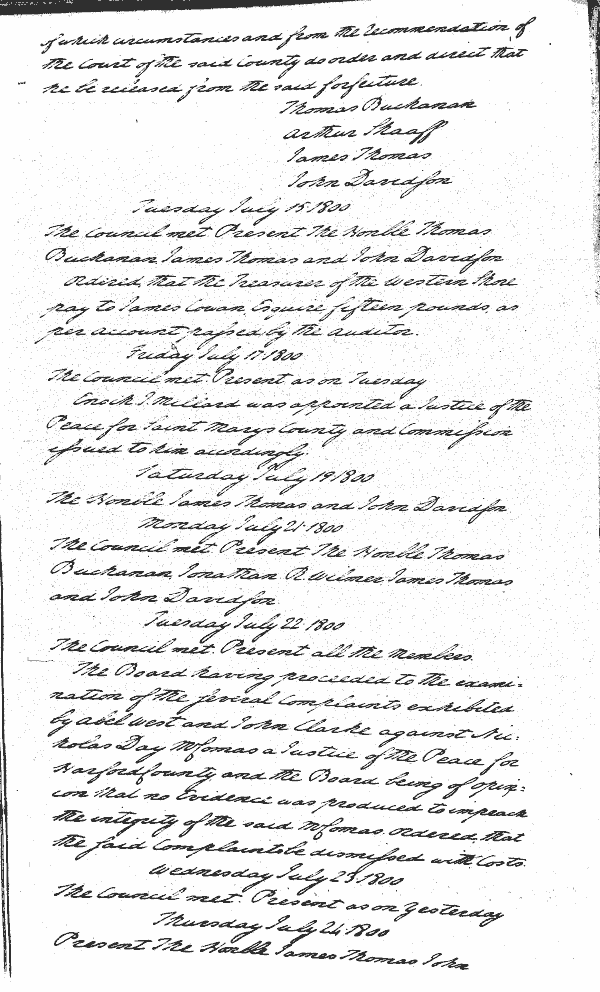 of which circumstances and from the recommendation of
the Court of the said County do order and direct that
he be released from the said forfeiture
Thomas Buchanan
Arthur Shaaff
James Thomas
John Davidson
Tuesday July 15 1800
The Council met Present The Honble Thomas
Buchanan James Thomas and John Davidson
Ordered, that the Treasurer of the Western Shore
pay to James Cowan, Esquire, fifteen pounds, as
per account, passed by the auditor.
Friday July 17 1800
The Council met. Present as on Tuesday
Enoch J. Millard was appointed a Justice of the
Peace for Saint Marys County and Commission
issued to him accordingly.
Saturday July 19 1800
The Honble James Thomas and John Davidson
Monday July 21 1800
The Council met. Present The Honble Thomas
Buchanan, Jonathan R. Wilmer, James Thomas
and John Davidson
Tuesday July 22 1800
The Council met. Present all the members.
The Board having proceeded to the exami:
nation of the several Complaints exhibited
by Abel West and John Clarke against Nic:
holas Day a Justice of the Peace for
Harford County and the Board being of opin:
ion that no Evidence was produced to impeach
the integrity of the said ordered, that
the said Complaints be dismissed with Costs.
Wednesday July 23 1800
The Council met. Present as on Yesterday
Thursday July 24 1800
Present The Honble James Thomas John